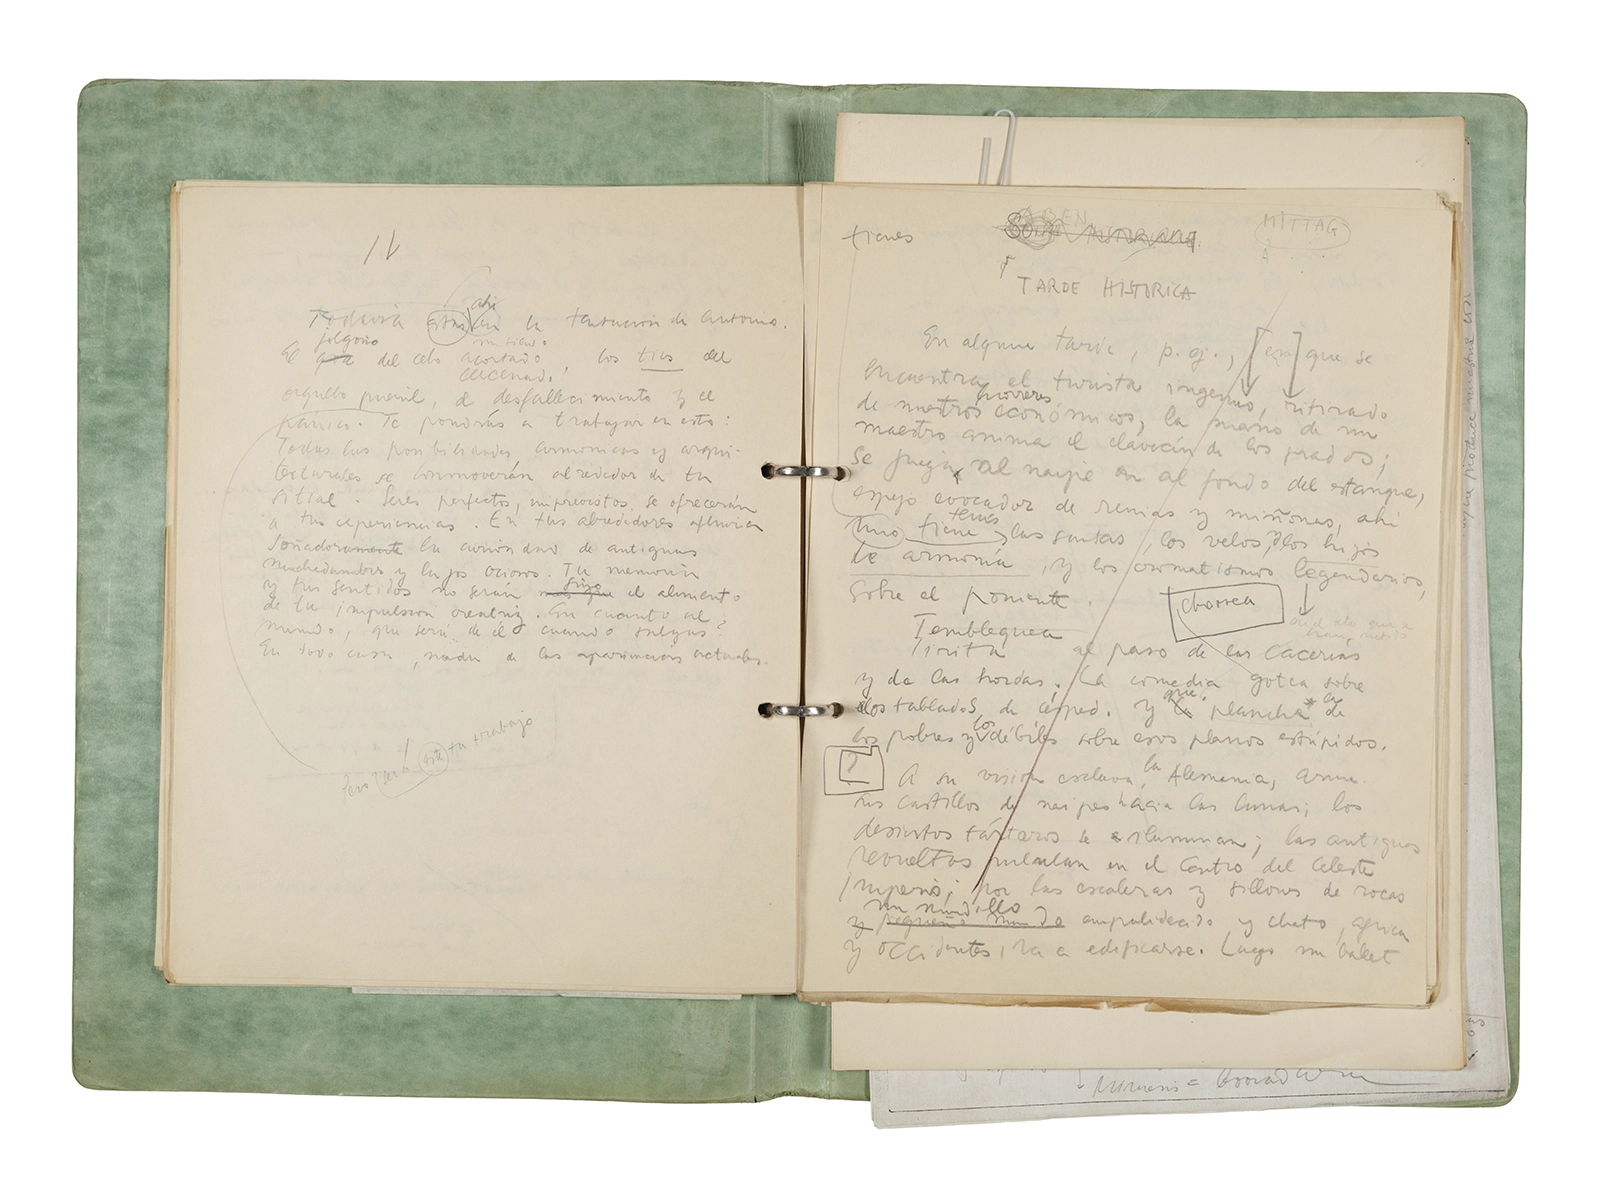 IV
ahí
Todavía estás en la tentación de Antonio.
jolgorio
El del celo acortado, los tics del
orgullo pueril, el desfallecimiento y el
pánico. Te pondrás a trabajar en esto:
Todas las posibilidades armónicas y arqui-
tecturales se conmoverán alrededor de tu
sitial. Seres perfectos, imprevistos, se ofrecerán
a tus experiencias. En tus alrededores afluirá
soñadoramente la curiosidad de antiguas
muchedumbres y lujos ociosos. Tu memoria
sino
y tus sentidos no serán más que el alimento
de tu impulsión creatriz. En cuanto al
mundo, qué será de él cuando salgas?
En todo caso, nada de las apariencias actuales.
Pero será éste tu trabajo
tienes
ABEN
MITTAG
TARDE HISTORICA
En alguna tarde, p. ej., en que se
encuentra el turista ingenuo, retirado
horrores
de nuestros económicos, la mano de un
maestro anima el clavecín de los prados;
se juega al naipe en al fondo del estanque,
espejo evocador de reinas y miñonas, ahí
tienes
uno tiene las santas, los velos, los hijos
de armonía, y los cromatismos legendarios,
sobre el poniente.
chorrea
Temblequea
Tirita al paso de las cacerías
y de las hordas. La comedia gotea sobre
los tablados de césped. Y que plancha la de
los pobres y los débiles sobre esos planos estúpidos.
?
A su visión esclava, la Alemania, arma
sus castillos de naipes hacia las lunas; los
desiertos tártaros se iluminan; las antiguas
revueltas pululan en el Centro del Celeste
Imperio; por las escaleras y sillones de rocas
un mundillo
y pequeño mundo empalidecido y chato, africa
y occidentes, va a edificarse. Luego un balet